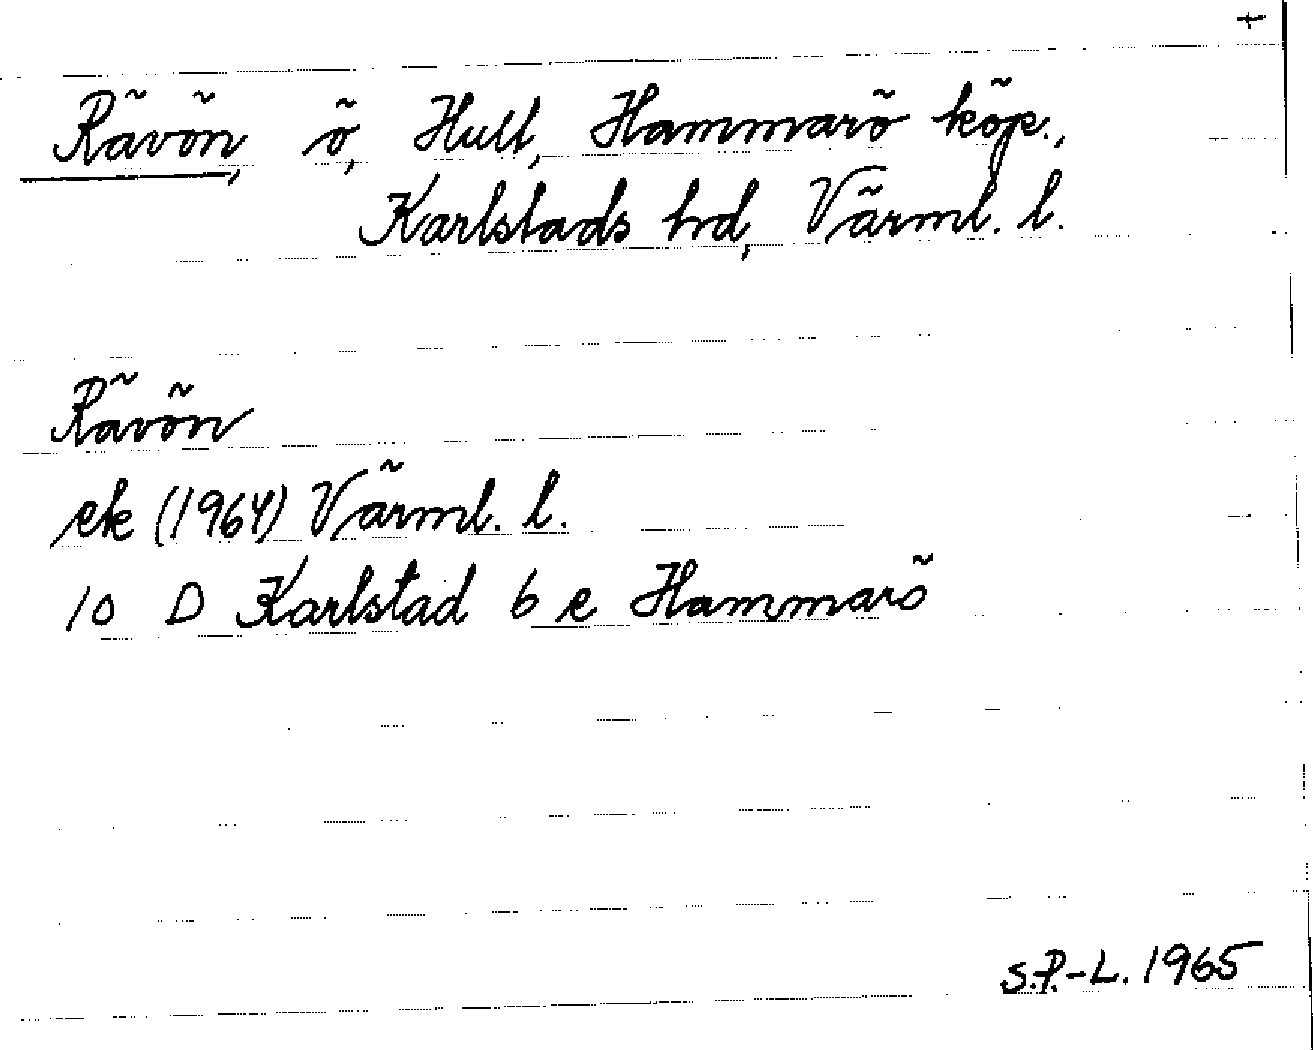 +
Rävön, ö, Hult, Hammarö köp.,
Karlstads hd, Värml. l.
Rävön
ek (1964) Värml. l.
10 D Karlstad 6 e Hammarö
S.P.-L. 1965